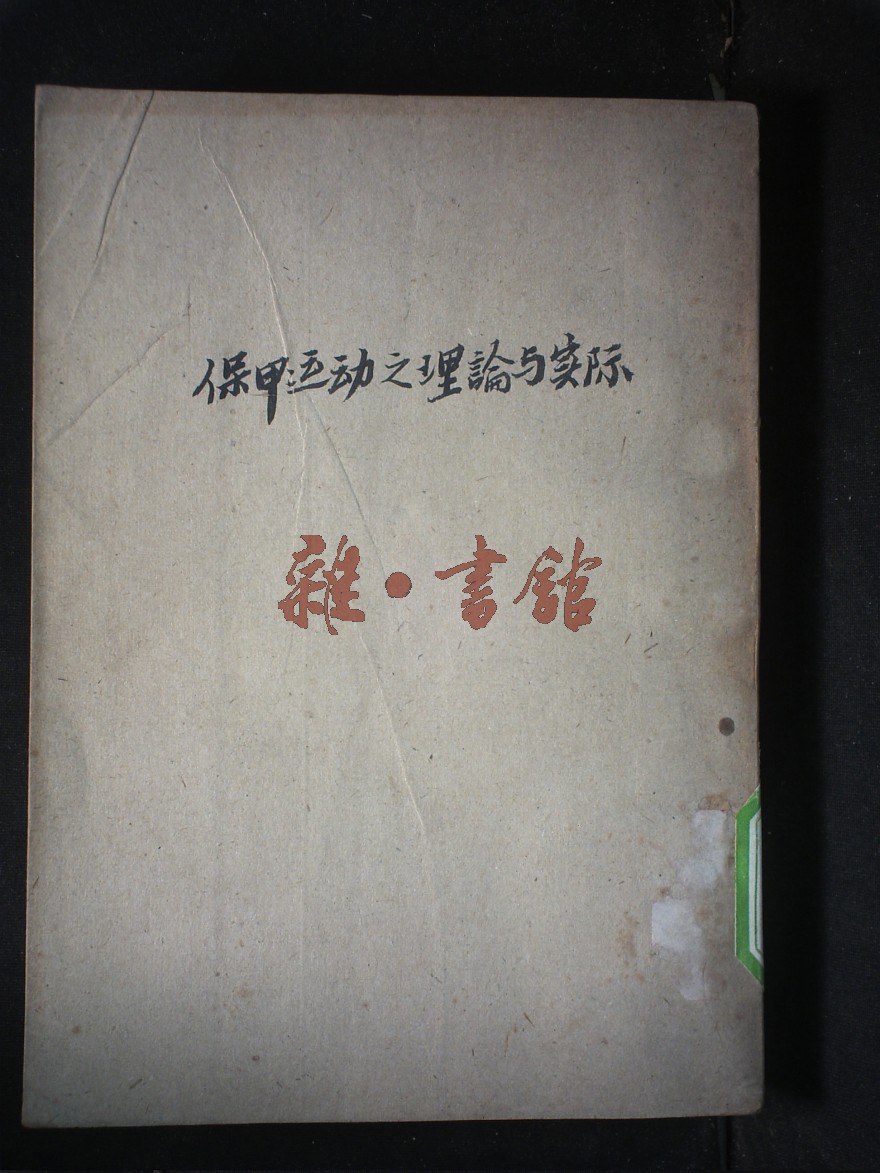 保甲运动之理論与实际
雜·書館